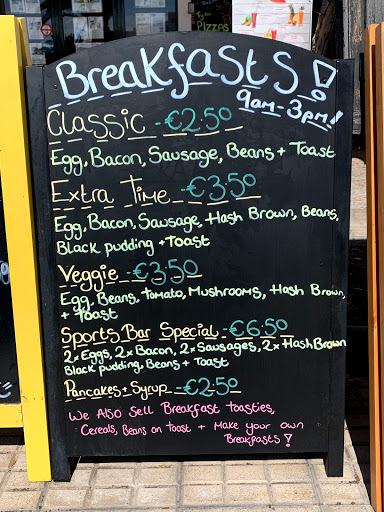 PIZZAS
Breakfasts!
9am-3pm!
Classic -€2.50
Egg, Bacon, Sausage, Beans + Toast
Extra Time -€3.50
Egg, Bacon, Sausage, Hash Brown, Beans,
Black pudding + Toast
Veggie -€3.50
Egg, Beans, Tomato, Mushrooms, Hash Brown,
+ Toast
Sports Bar Special -€6.50
2x Eggs, 2x Bacon, 2x Sausages, 2x Hash Brown
Black pudding, Beans + Toast
Pancakes + Syrup -€2.50
We Also Sell Breakfast toasties,
Cereals, Beans on toast + Make your own
Breakfasts!